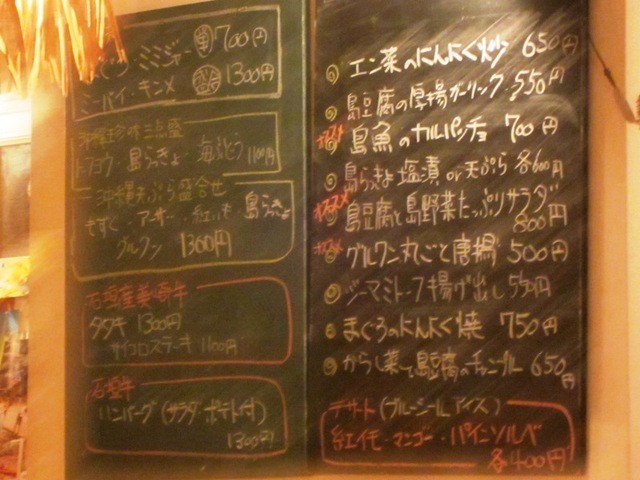 ミミジャー 単 700円
ミーバイ・キンメ 1300円
沖縄珍味三点盛
トーフヨウ 島らっきょ 海ぶどう 1100円
沖縄天ぷら盛合せ
もずく アーサー 紅いも 島らっきょ
グルクン 1300円
石垣産美崎牛
タタキ 1300円
サイコロステーキ 1100円
石垣牛
ハンバーグ (サラダ・ポテト付)
1300円
エン菜のにんにく炒 650円
島豆腐の厚揚ガーリック 550円
オススメ 島魚のカルパッチョ 700円
島らきょ塩漬 or 天ぷら 各600円
オススメ 島豆腐と島野菜たっぷりサラダ
800円
オススメ グルクン丸ごと唐揚 500円
ジーマミトーフ揚げ出し 550円
まぐろのにんにく焼 750円
からし菜と島豆腐のチャンプルー 650円
デザート (ブルーシールアイス)
紅イモ・マンゴー・パインソルベ
各400円